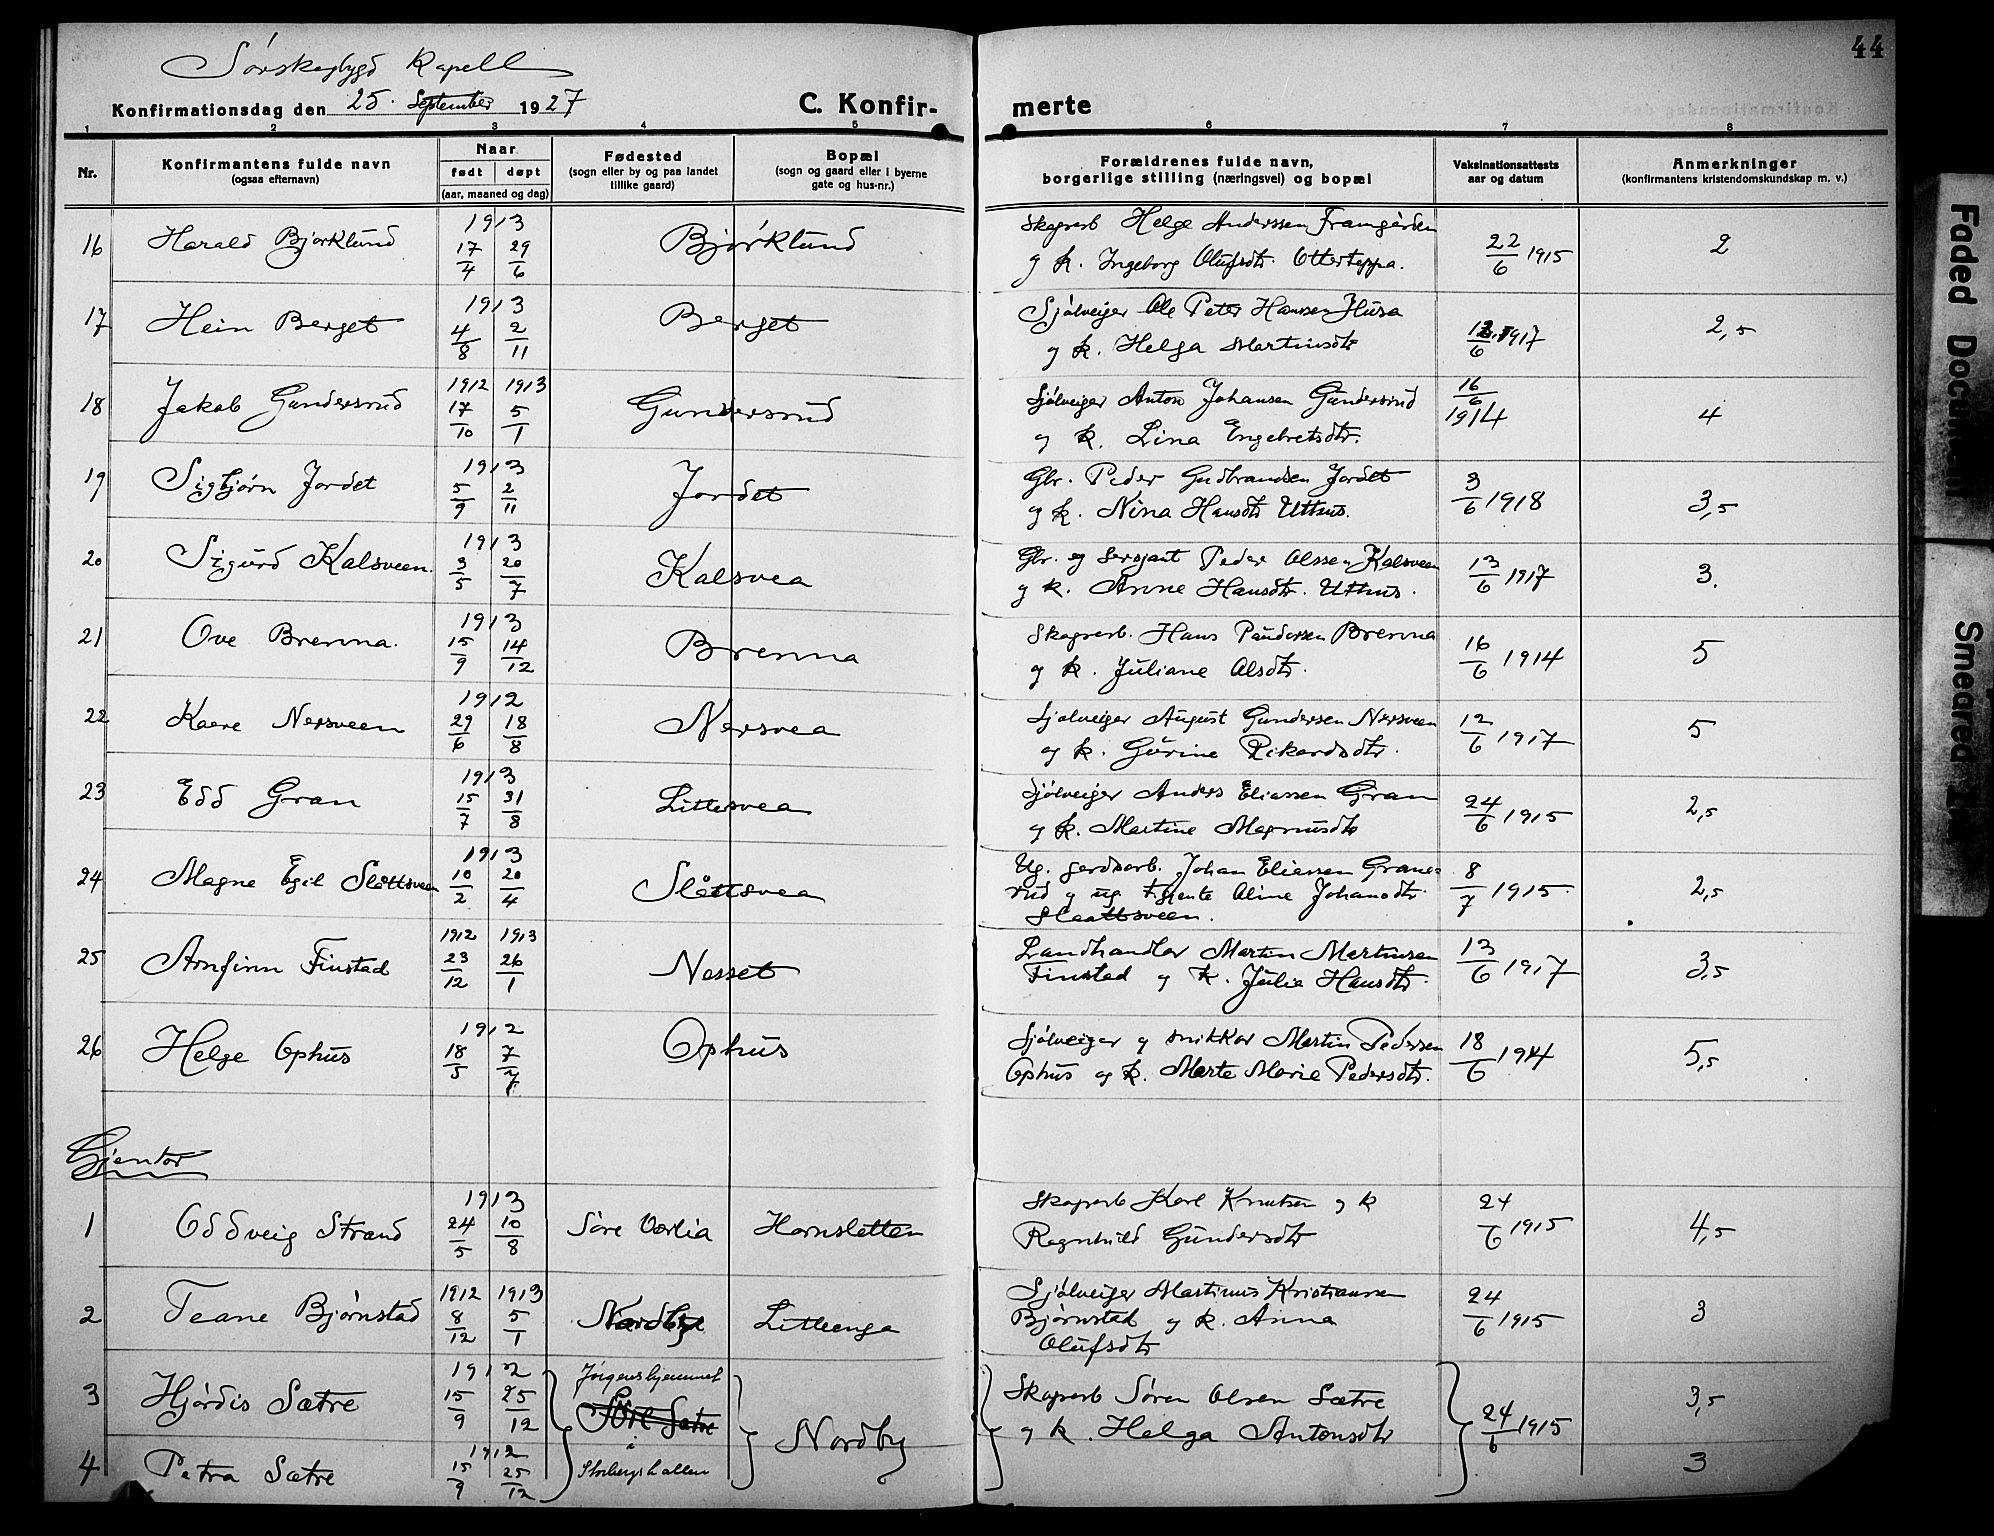 44
Sørskogbygd Kapell
Konfirmationsdag den 25. September 1927
C. Konfir-merte
1 2 3 4 5 6 7 8
Nr.
Konfirmantens fulde navn
(ogsaa efternavn)
Naar
født døpt
(aar, maaned og dag)
Fødested
(sogn eller by og paa landet
tillike gaard)
Bopæl
(sogn og gaard eller i byerne
gate og hus-nr.)
Forældrenes fulde navn,
borgerlige stilling (næringsvei) og bopæl
Vaksinationsattests
aar og datum
Anmerkninger
(konfirmantens kristendomskundskap m. v.)
16 Harald Bjørklund 1913 17/4 29/6 Bjørklund Skogarb Helge Anderssen Framgården
og k. Ingeborg Olufsdtr. Otterteppa. 22/6 1915 2
17 Hein Berget 1913 4/8 2/11 Berget Sjølveiger Ole Peter Hanssen Husa
og k. Helga Martinsdtr 12/6 1917 2,5
18 Jakob Gundersrud 1912 17/10 1913 5/1 Gundersrud Sjølveiger Anton Johansen Gundersrud
og k. Lina Engebretsdtr. 16/6 1914 4
19 Sigbjørn Jordet 1913 5/9 2/11 Jordet Gbr. Peder Gudbrandsen Jordet
og k. Nina Hansdtr Uthus. 3/6 1918 3,5
20 Sigurd Kalsveen. 1913 3/5 20/7 Kalsvea Gbr. og sersjant Peder Olssen Kalsveen
og k. Anne Hansdtr. Uthus. 13/6 1917 3.
21 Ove Brenna. 1913 15/9 14/12 Brenna Skogarb. Hans Paudersen Brenna
og k. Juliane Olsdtr. 16/6 1914 5
22 Kaare Nersveen 1912 29/6 18/8 Nersvea Sjølveiger August Gundersen Nersveen
og k. Gurine Rikardsdtr. 12/6 1917 5
23 Edd Gran 1913 15/7 31/8 Littesvea Sjølveiger Anders Eliassen Gran
og k. Martine Magnusdtr 24/6 1915 2,5
24 Magne Egil Slåttsveen 1913 10/2 20/4 Slåttsvea Ug. gardsarb. Johan Eliassen Grane-
rud og ug tjente Oline Johansdtr
Slaattsveen. 8/7 1915. 2,5
25 Arnfinn Finstad 1912 23/12 1913 26/1 Nesset Landhandlar Martin Martinsen
Finstad og k. Julie Hansdtr. 13/6 1917 3,5
26 Helge Ophus 1912 18/5 7/7 Ophus Sjølveiger og snikkar Martin Pedersen
Ophus og k. Marte Marie Pedersdtr. 18/6 1914 5,5
Gjentor
1 Oddveig Strand 1913 24/5 10/8 Søre Værlia Hornsletten Skogarb Karl Knutsen og k
Ragnhild Gundersdtr 24/6 1915 4,5
2 Teane Bjørnstad 1912 8/12 1913 5/1 Nordbye Litleenga Sjølveiger Martinus Kristiansen
Bjørnstad og k. Anna
Olufsdtr 24/6 1915 3
3 Hjørdis Sætre 1912 15/9 25/12 Jørgenshjemmet
Søre Sætre
i
Storbergshallen Nordby Skogarb Søren Olsen Sætre
og k. Helga Antonsdtr 24/6 1915 3,5
4 Petra Sætre 1912 15/9 25/12 3
Faded Document
Smeared Ink